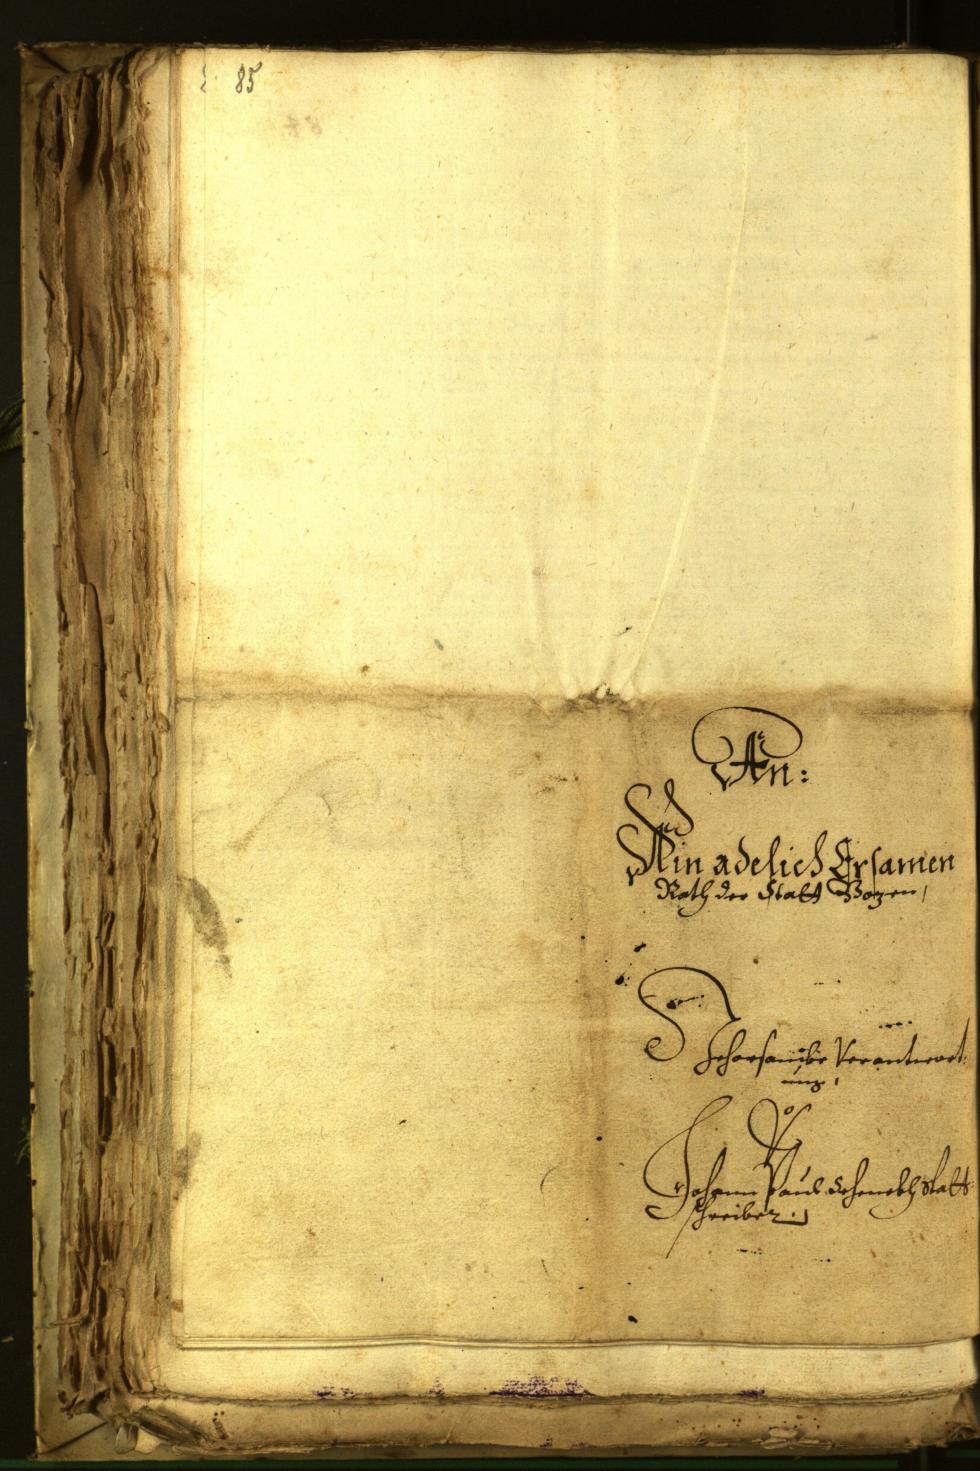 85
An:
Ain adelich Ersamen
Rath der Statt Bozen,
Gehorsambe Verantwort
ung,
Johann Paul Statt
schreiber.